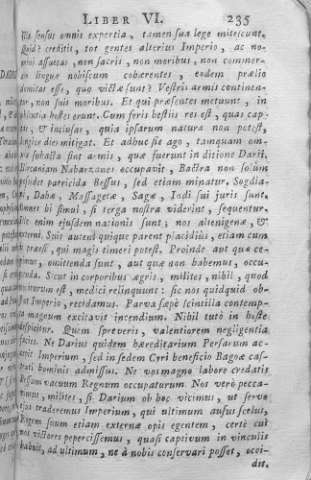 LIBER VI. 235
sensus omnis expertia, tamen sua lege mitescunt.
Quid? creditis, tot gentes alterius Imperio, ac no-
mini assuetas, non sacris, non moribus, non commer-
linguæ nobiscum cohærentes, eodem prælio
domitas esse, quo victæ sunt? Vestris armis continen-
tur, non suis moribus. Et qui præsentes metuunt, in
absentia hostes erunt. Cum feris bestiis res est, quas cap-
& inclusas, quia ipsarum natura non potest,
longior dies mitigat. Et adhuc sic ago, tanquam om-
subacta sint armis, quæ fuerunt in ditione Darii.
Hircaniam Nabarzanes occupavit, Bactra non solum
possidet parricida Bessus, sed etiam minatur. Sogdia-
Dahæ, Massagetæ, Sagæ, Indi sui juris sunt.
Omnes hi simul, si terga nostra viderint, sequentur.
enim ejusdem nationis sunt; nos alienigenæ, &
externi. Suis autem quique parent placidius, etiam cum
præest, qui magis timeri potest. Proinde aut quæ ce-
omittenda sunt, aut quæ non habemus, occu-
panda. Sicut in corporibus ægris, milites, nihil, quod
nociturum est, medici relinquunt: sic nos quidquid ob-
stat Imperio, recidamus. Parva sæpe scintilla contemp-
ta magnum excitavit incendium. Nihil tutò in hoste
despicitur. Quem spreveris, valentiorem negligentia
facies. Ne Darius quidem hæreditarium Persarum ac-
cepit Imperium, sed in sedem Cyri beneficio Bagoæ cas-
trati hominis admissus. Ne vos magno labore credatis
Bessum vacuum Regnum occupaturum. Nos verò pecca-
milites, si Darium ob hoc vicimus, ut servo
ejus traderemus Imperium, qui ultimum ausus scelus,
Regem suum etiam externæ opis egentem, certè cui
nos victores pepercissemus, quasi captivum in vinculis
habuit, ad ultimum, ne à nobis conservari posset, occi-
dit.